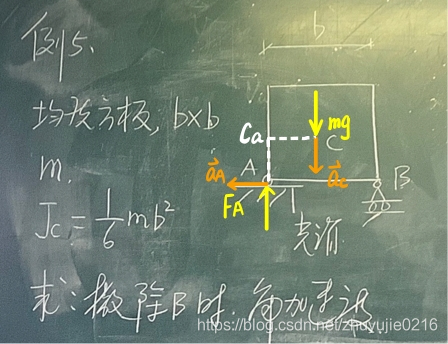 例5.
b
均质方板, b×b
m.
J_C = 1/6 mb²
mg
Ca
C
A
a⃗_A
a⃗_c
B
F_A
光滑
求:撤除B时,角加速度
https://blog.csdn.net/zhuyujie0216